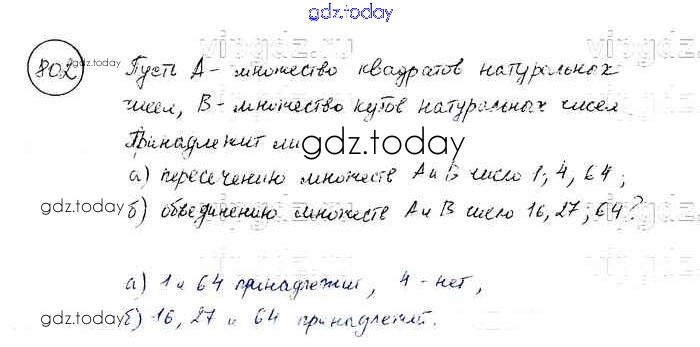 gdz.today
802
gdz.today
vipgdz.ru
Пусть А - множество квадратов натуральных
чисел, В - множество кубов натуральных чисел
Принадлежит ли
gdz.today
а) пересечению множеств А и В число 1, 4, 64;
gdz.today
б) объединению множеств А и В число 16, 27, 64?
vipgdz.ru
а) 1 и 64 принадлежит, 4 - нет,
gdz.today
б) 16, 27 и 64 принадлежит.
gdz.today